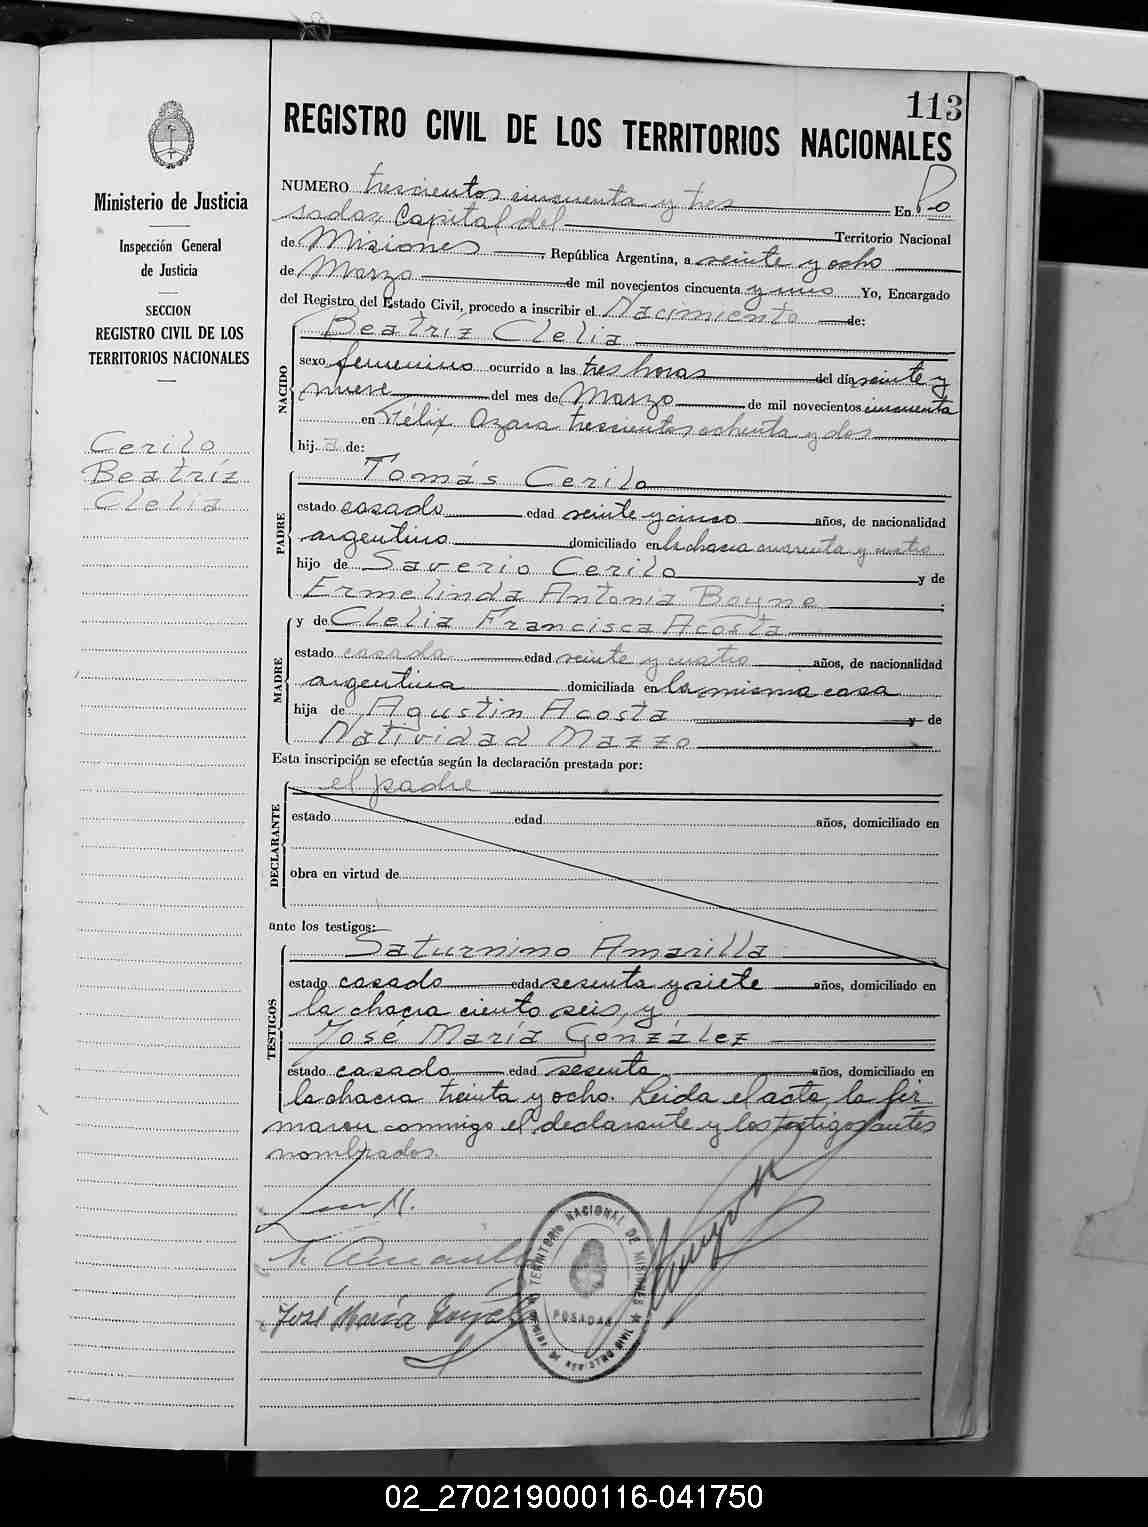 113
REGISTRO CIVIL DE LOS TERRITORIOS NACIONALES
Ministerio de Justicia
Inspección General
de Justicia
SECCION
REGISTRO CIVIL DE LOS
TERRITORIOS NACIONALES
Cerilo
Beatríz
Clelia
NUMERO trescientos cincuenta y tres En Po
sadas Capital del Territorio Nacional
de Misiones, República Argentina, a veinte y ocho
de Marzo de mil novecientos cincuenta y uno Yo, Encargado
del Registro del Estado Civil, procedo a inscribir el Nacimiento de:
NACIDO
Beatriz Clelia
sexo femenino ocurrido a las tres horas del día veinte y
nueve del mes de Marzo de mil novecientos cincuenta
en Félix Azara trescientos ochenta y dos
hij a de:
PADRE
Tomás Cerilo
estado casado edad veinte y cinco años, de nacionalidad
argentino domiciliado en la chacra cuarenta y cuatro
hijo de Saverio Cerilo y de
Ermelinda Antonia Boyne
MADRE
y de Clelia Francisca Acosta
estado casada edad veinte y cuatro años, de nacionalidad
argentina domiciliada en la misma casa
hija de Agustin Acosta y de
Natividad Mazzo
Esta inscripción se efectúa según la declaración prestada por:
DECLARANTE
el padre
estado edad años, domiciliado en
obra en virtud de
ante los testigos:
TESTIGOS
Saturnino Amarilla
estado casado edad sesenta y siete años, domiciliado en
la chacra ciento seis, y
José María González
estado casado edad sesenta años, domiciliado en
la chacra treinta y ocho. Leida el acta la fir
maron conmigo el declarante y los testigos antes
nombrados.
José María
TERRITORIO NACIONAL DE MISIONES
POSADAS
02_270219000116-041750